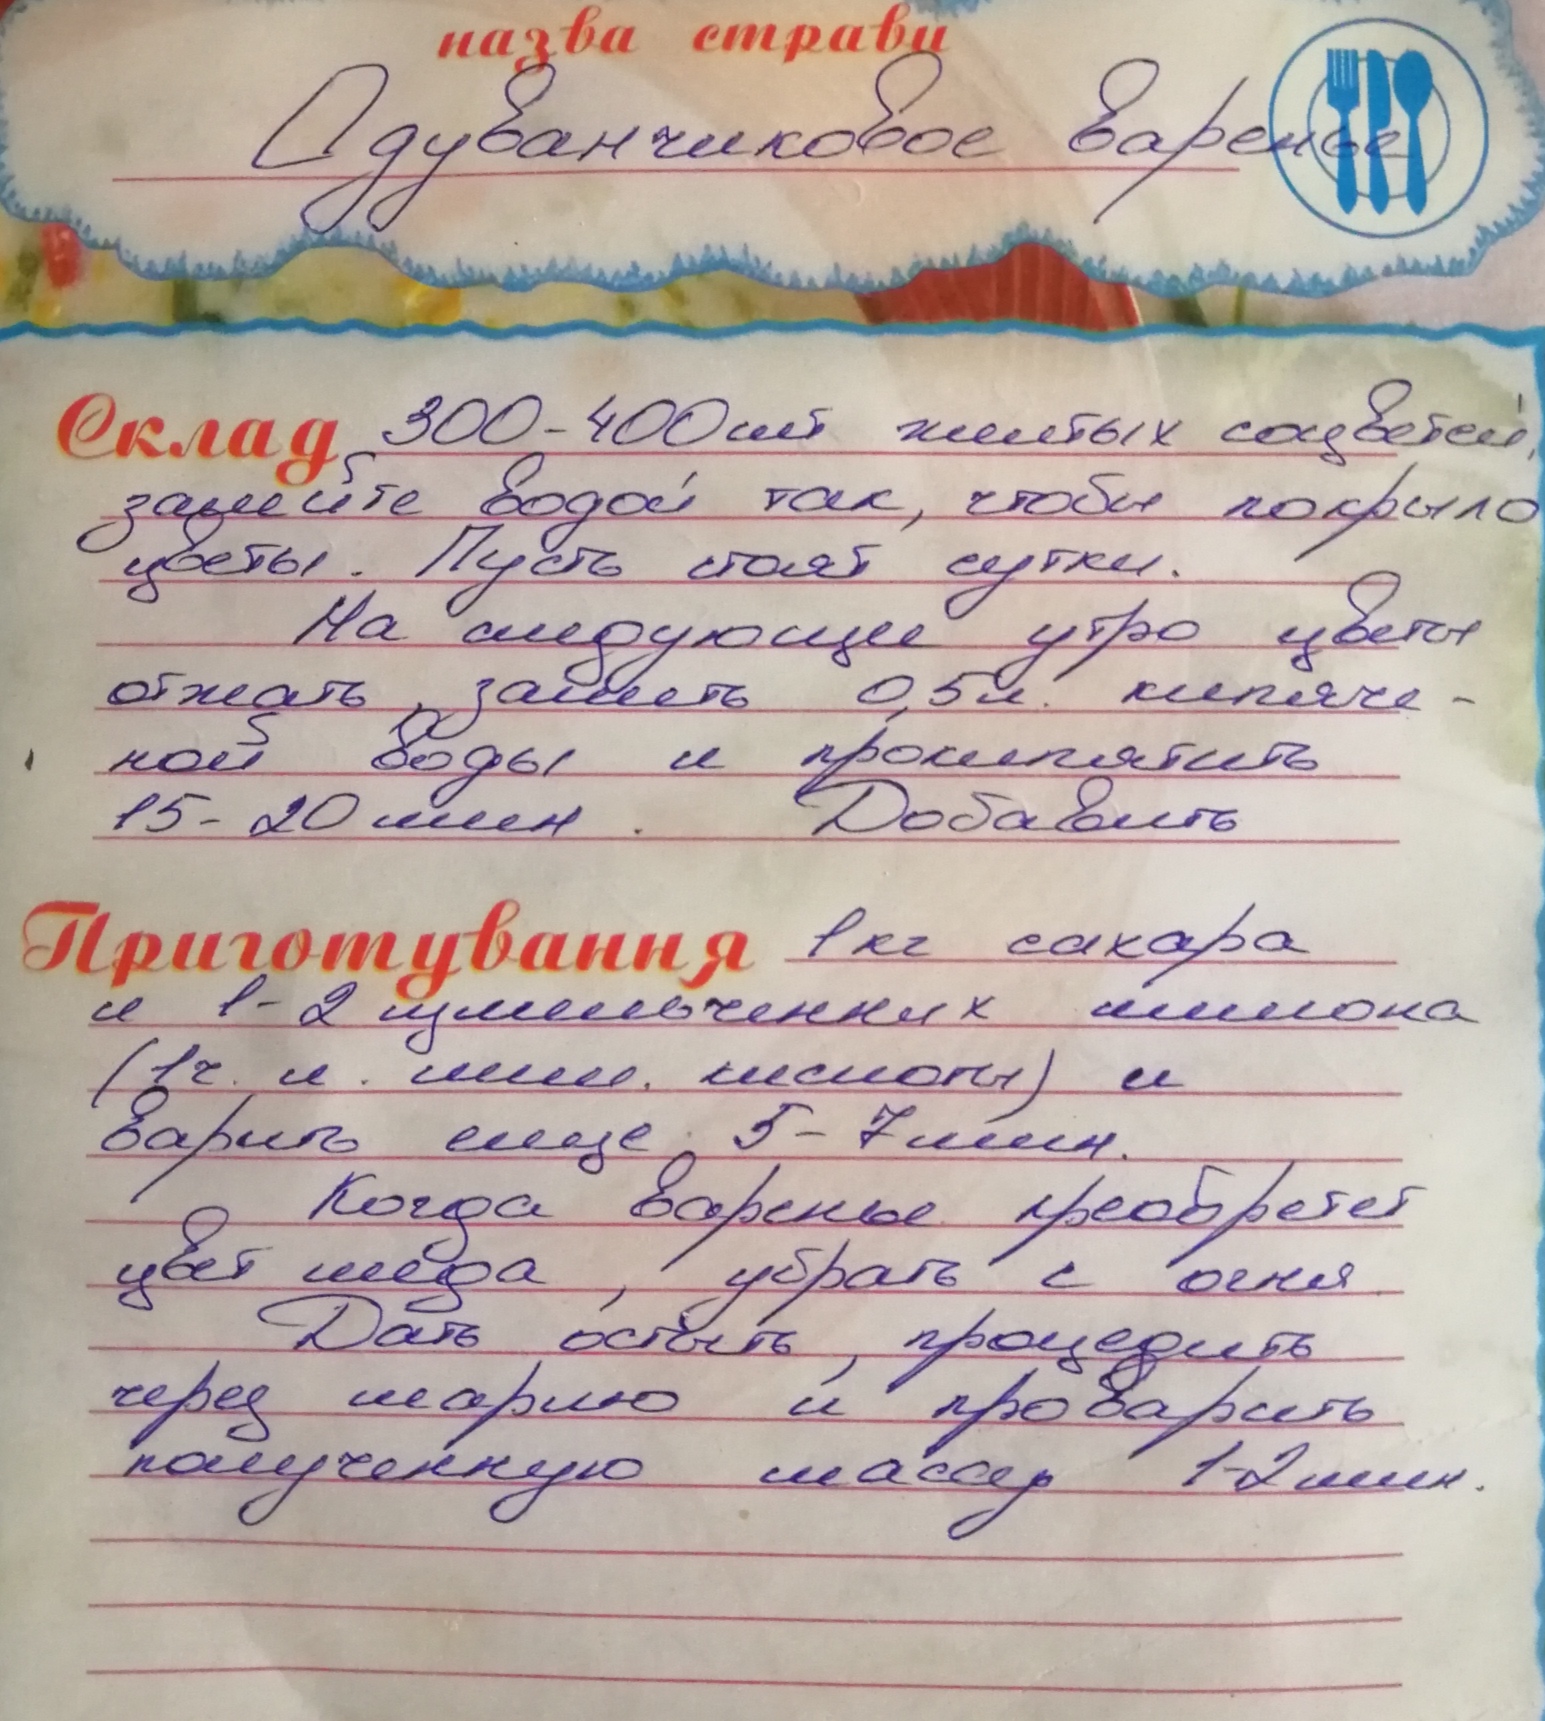 назва страви
Одуванчиковое варенье
Склад 300-400шт желтых соцветей,
залейте водой так, чтобы покрыло
цветы. Пусть стоят сутки.
На следующее утро цветы
отжать, залить 0,5л. кипяче-
ной воды и прокипятить
15-20 мин. Добавить
Приготування 1 кг сахара
и 1-2 измельченных лимона
(1ч. л. лим. кислоты) и
варить еще 5-7 мин.
Когда варенье преобретет
цвет меда, убрать с огня
Дать остыть, процедить
через марлю и проварить
полученную массу 1-2 мин.